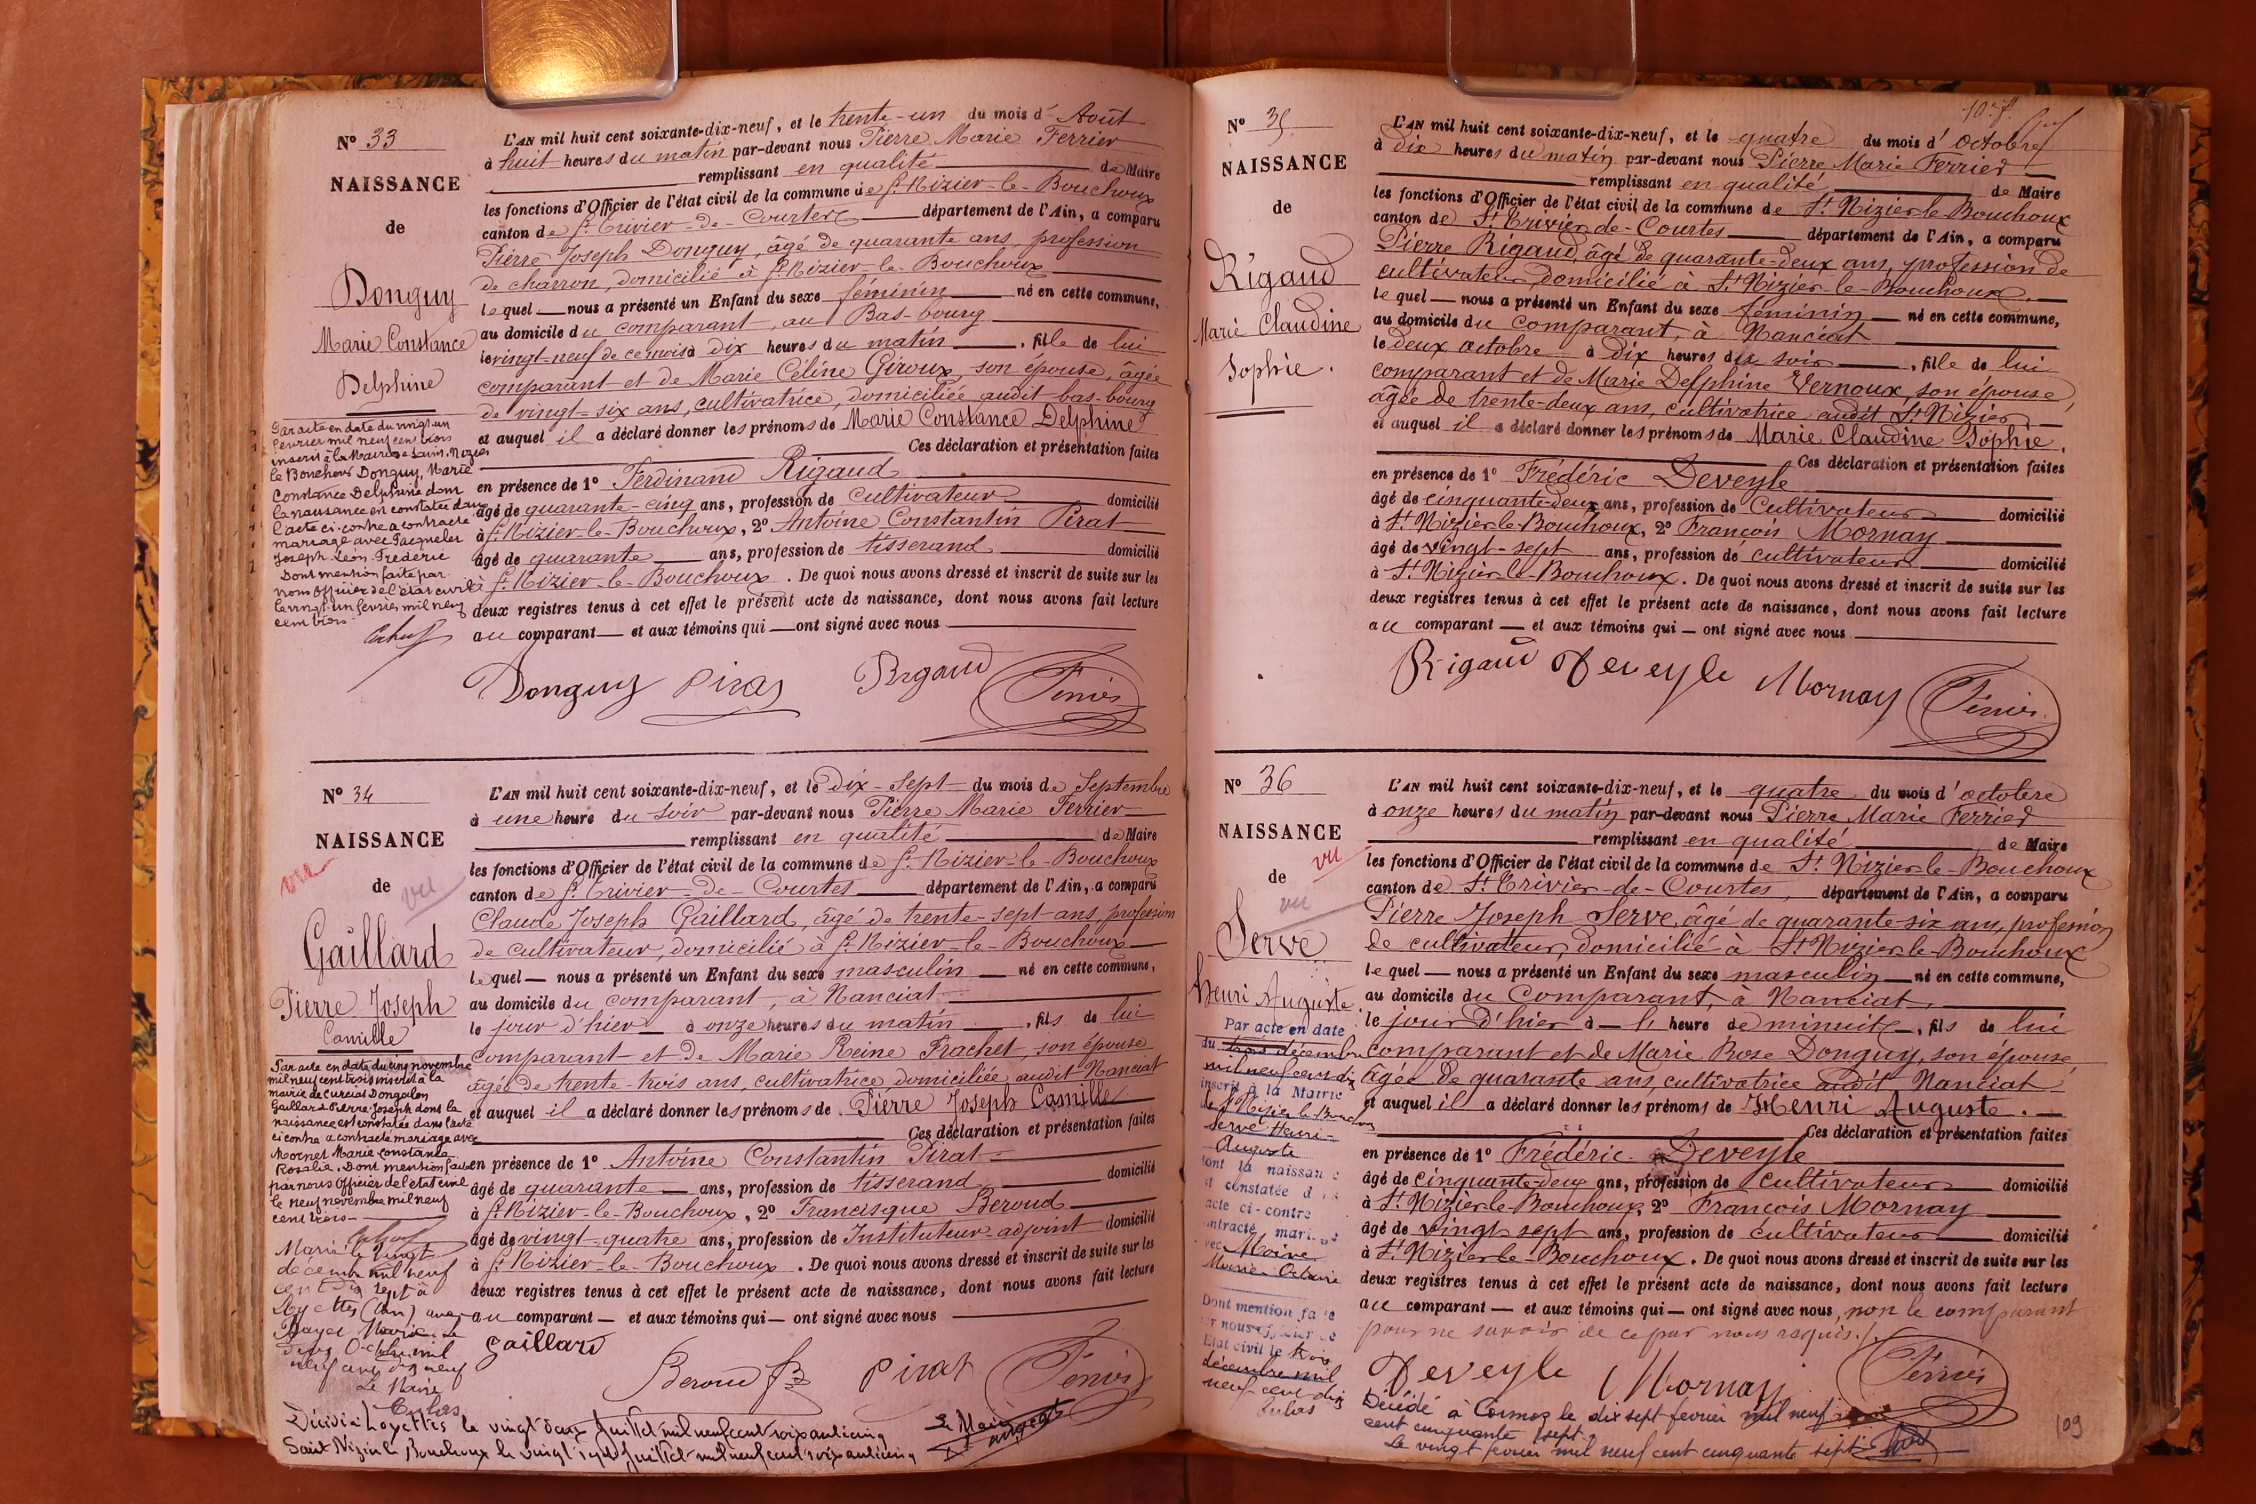 Nº 33
NAISSANCE
de
Donguy
Marie Constance
Delphine
Par acte en date du vingt un
février mil neuf cent trois
inscrit à la Mairie de Saint-Nizier
le Bouchoux Donguy, Marie
Constance Delphine dont
la naissance est constatée dans
l'acte ci-contre a contracté
mariage avec Pacquelet
Joseph Léon Frédéric
Dont mention faite par
nous Officier de l'état civil
le vingt-un février mil neuf
cent trois.
L'AN mil huit cent soixante-dix-neuf, et le trente-un du mois d' Août
à huit heures du matin par-devant nous Pierre Marie Ferrier
remplissant en qualité de Maire
les fonctions d'Officier de l'état civil de la commune de St. Nizier-le-Bouchoux
canton de St. Trivier-de-Courtes département de l'Ain, a comparu
Pierre Joseph Donguy, âgé de quarante ans, profession
de charron, domicilié à St. Nizier-le-Bouchoux
lequel — nous a présenté un Enfant du sexe féminin né en cette commune,
au domicile du comparant, au Bas-bourg
le vingt-neuf de ce mois à dix heures du matin, fille de lui
comparant et de Marie Céline Giroux, son épouse, âgée
de vingt-six ans, cultivatrice, domiciliée audit bas-bourg
et auquel il a déclaré donner les prénoms de Marie Constance Delphine
Ces déclaration et présentation faites
en présence de 1º Ferdinand Rigaud
âgé de quarante-cinq ans, profession de cultivateur domicilié
à St. Nizier-le-Bouchoux, 2º Antoine Constantin Pirat
âgé de quarante ans, profession de tisserand domicilié
à St. Nizier-le-Bouchoux. De quoi nous avons dressé et inscrit de suite sur les
deux registres tenus à cet effet le présent acte de naissance, dont nous avons fait lecture
au comparant — et aux témoins qui — ont signé avec nous
Donguy Pirat Rigaud Ferrier
Nº 34
NAISSANCE
vu
de
vu
Gaillard
Pierre Joseph
Camille
Par acte en date du cinq novembre
mil neuf cent trois inscrit à la
mairie de Curciat Dongalon
Gaillard Pierre Joseph dont la
naissance est constatée dans l'acte
ci contre a contracté mariage avec
Mornet Marie Constance
Rosalie. Dont mention faite
par nous Officier de l'état civil
le neuf novembre mil neuf
cent trois
Marié le vingt
décembre mil neuf
cent dix sept à
Loyettes (Ain) avec
Bayet Marie. Le
deux Octobre mil
neuf cent dix neuf
Le Maire
L'AN mil huit cent soixante-dix-neuf, et le dix-sept du mois de Septembre
à une heure du soir par-devant nous Pierre Marie Ferrier
remplissant en qualité de Maire
les fonctions d'Officier de l'état civil de la commune de St. Nizier-le-Bouchoux
canton de St. Trivier-de-Courtes département de l'Ain, a comparu
Claude Joseph Gaillard, âgé de trente-sept ans, profession
de cultivateur, domicilié à St. Nizier-le-Bouchoux
lequel — nous a présenté un Enfant du sexe masculin — né en cette commune,
au domicile du comparant, à Nanciat
le jour d'hier à onze heures du matin, fils de lui
comparant et de Marie Reine Frachet, son épouse
âgée de trente-trois ans, cultivatrice, domiciliée audit Nanciat
et auquel il a déclaré donner les prénoms de Pierre Joseph Camille
Ces déclaration et présentation faites
en présence de 1º Antoine Constantin Pirat
âgé de quarante — ans, profession de tisserand domicilié
à St. Nizier-le-Bouchoux, 2º Francisque Beroud
âgé de vingt-quatre ans, profession de Instituteur-adjoint domicilié
à St. Nizier-le-Bouchoux. De quoi nous avons dressé et inscrit de suite sur les
deux registres tenus à cet effet le présent acte de naissance, dont nous avons fait lecture
au comparant — et aux témoins qui — ont signé avec nous
Gaillard
Beroud Pirat Ferrier
Décédé à Loyettes le vingt deux juillet mil neuf cent soixante cinq
Saint Nizier le Bouchoux le vingt sept juillet mil neuf cent soixante cinq
Le Maire
Nº 35
NAISSANCE
de
Rigaud
Marie Claudine
Sophie.
L'AN mil huit cent soixante-dix-neuf, et le quatre du mois d' octobre
à dix heures du matin par-devant nous Pierre Marie Ferrier
remplissant en qualité de Maire
les fonctions d'Officier de l'état civil de la commune de St. Nizier-le-Bouchoux
canton de St. Trivier-de-Courtes département de l'Ain, a comparu
Pierre Rigaud, âgé de quarante-deux ans, profession de
cultivateur, domicilié à St. Nizier-le-Bouchoux.
lequel — nous a présenté un Enfant du sexe féminin — né en cette commune,
au domicile du comparant, à Nanciat
le deux octobre à dix heures du soir, fille de lui
comparant et de Marie Delphine Vernoux, son épouse,
âgée de trente-deux ans, cultivatrice audit St. Nizier
et auquel il a déclaré donner les prénoms de Marie Claudine Sophie.
Ces déclaration et présentation faites
en présence de 1º Frédéric Deveyle
âgé de cinquante-deux ans, profession de Cultivateur domicilié
à St. Nizier-le-Bouchoux, 2º François Mornay
âgé de vingt-sept ans, profession de cultivateur domicilié
à St. Nizier-le-Bouchoux. De quoi nous avons dressé et inscrit de suite sur les
deux registres tenus à cet effet le présent acte de naissance, dont nous avons fait lecture
au comparant — et aux témoins qui — ont signé avec nous
Rigaud Deveyle Mornay Ferrier
Nº 36
NAISSANCE
vu
de
vu
Serve
Henri Auguste
Par acte en date
du trois décembre
mil neuf cent dix
inscrit à la Mairie
de St Nizier le Bouchoux
Serve Henri-
Auguste
dont la naissance
est constatée d
acte ci-contre
contracté mariage
avec Moine
Marie Octavie
Dont mention faite
par nous officier de
Etat civil le trois
décembre mil
neuf cent dix
L'AN mil huit cent soixante-dix-neuf, et le quatre du mois d' octobre
à onze heures du matin par-devant nous Pierre Marie Ferrier
remplissant en qualité de Maire
les fonctions d'Officier de l'état civil de la commune de St. Nizier-le-Bouchoux
canton de St. Trivier-de-Courtes, département de l'Ain, a comparu
Pierre Joseph Serve, âgé de quarante-six ans, profession
de cultivateur, domicilié à St. Nizier-le-Bouchoux
lequel — nous a présenté un Enfant du sexe masculin — né en cette commune,
au domicile du Comparant, à Nanciat,
le jour d'hier à — l' heure de minuit, fils de lui
comparant et de Marie Rose Donguy, son épouse,
âgée de quarante ans, cultivatrice audit Nanciat,
et auquel il a déclaré donner les prénoms de Henri Auguste.
Ces déclaration et présentation faites
en présence de 1º Frédéric Deveyle
âgé de cinquante-deux ans, profession de cultivateur domicilié
à St. Nizier-le-Bouchoux, 2º François Mornay
âgé de vingt sept ans, profession de cultivateur domicilié
à St. Nizier-le-Bouchoux. De quoi nous avons dressé et inscrit de suite sur les
deux registres tenus à cet effet le présent acte de naissance, dont nous avons fait lecture
au comparant — et aux témoins qui — ont signé avec nous, non le comparant
pour ne savoir de ce par nous requis.
Deveyle Mornay Ferrier
Décédé à Cormoz le dix sept fevrier mil neuf
cent cinquante sept.
Le vingt fevrier mil neuf cent cinquante sept
109